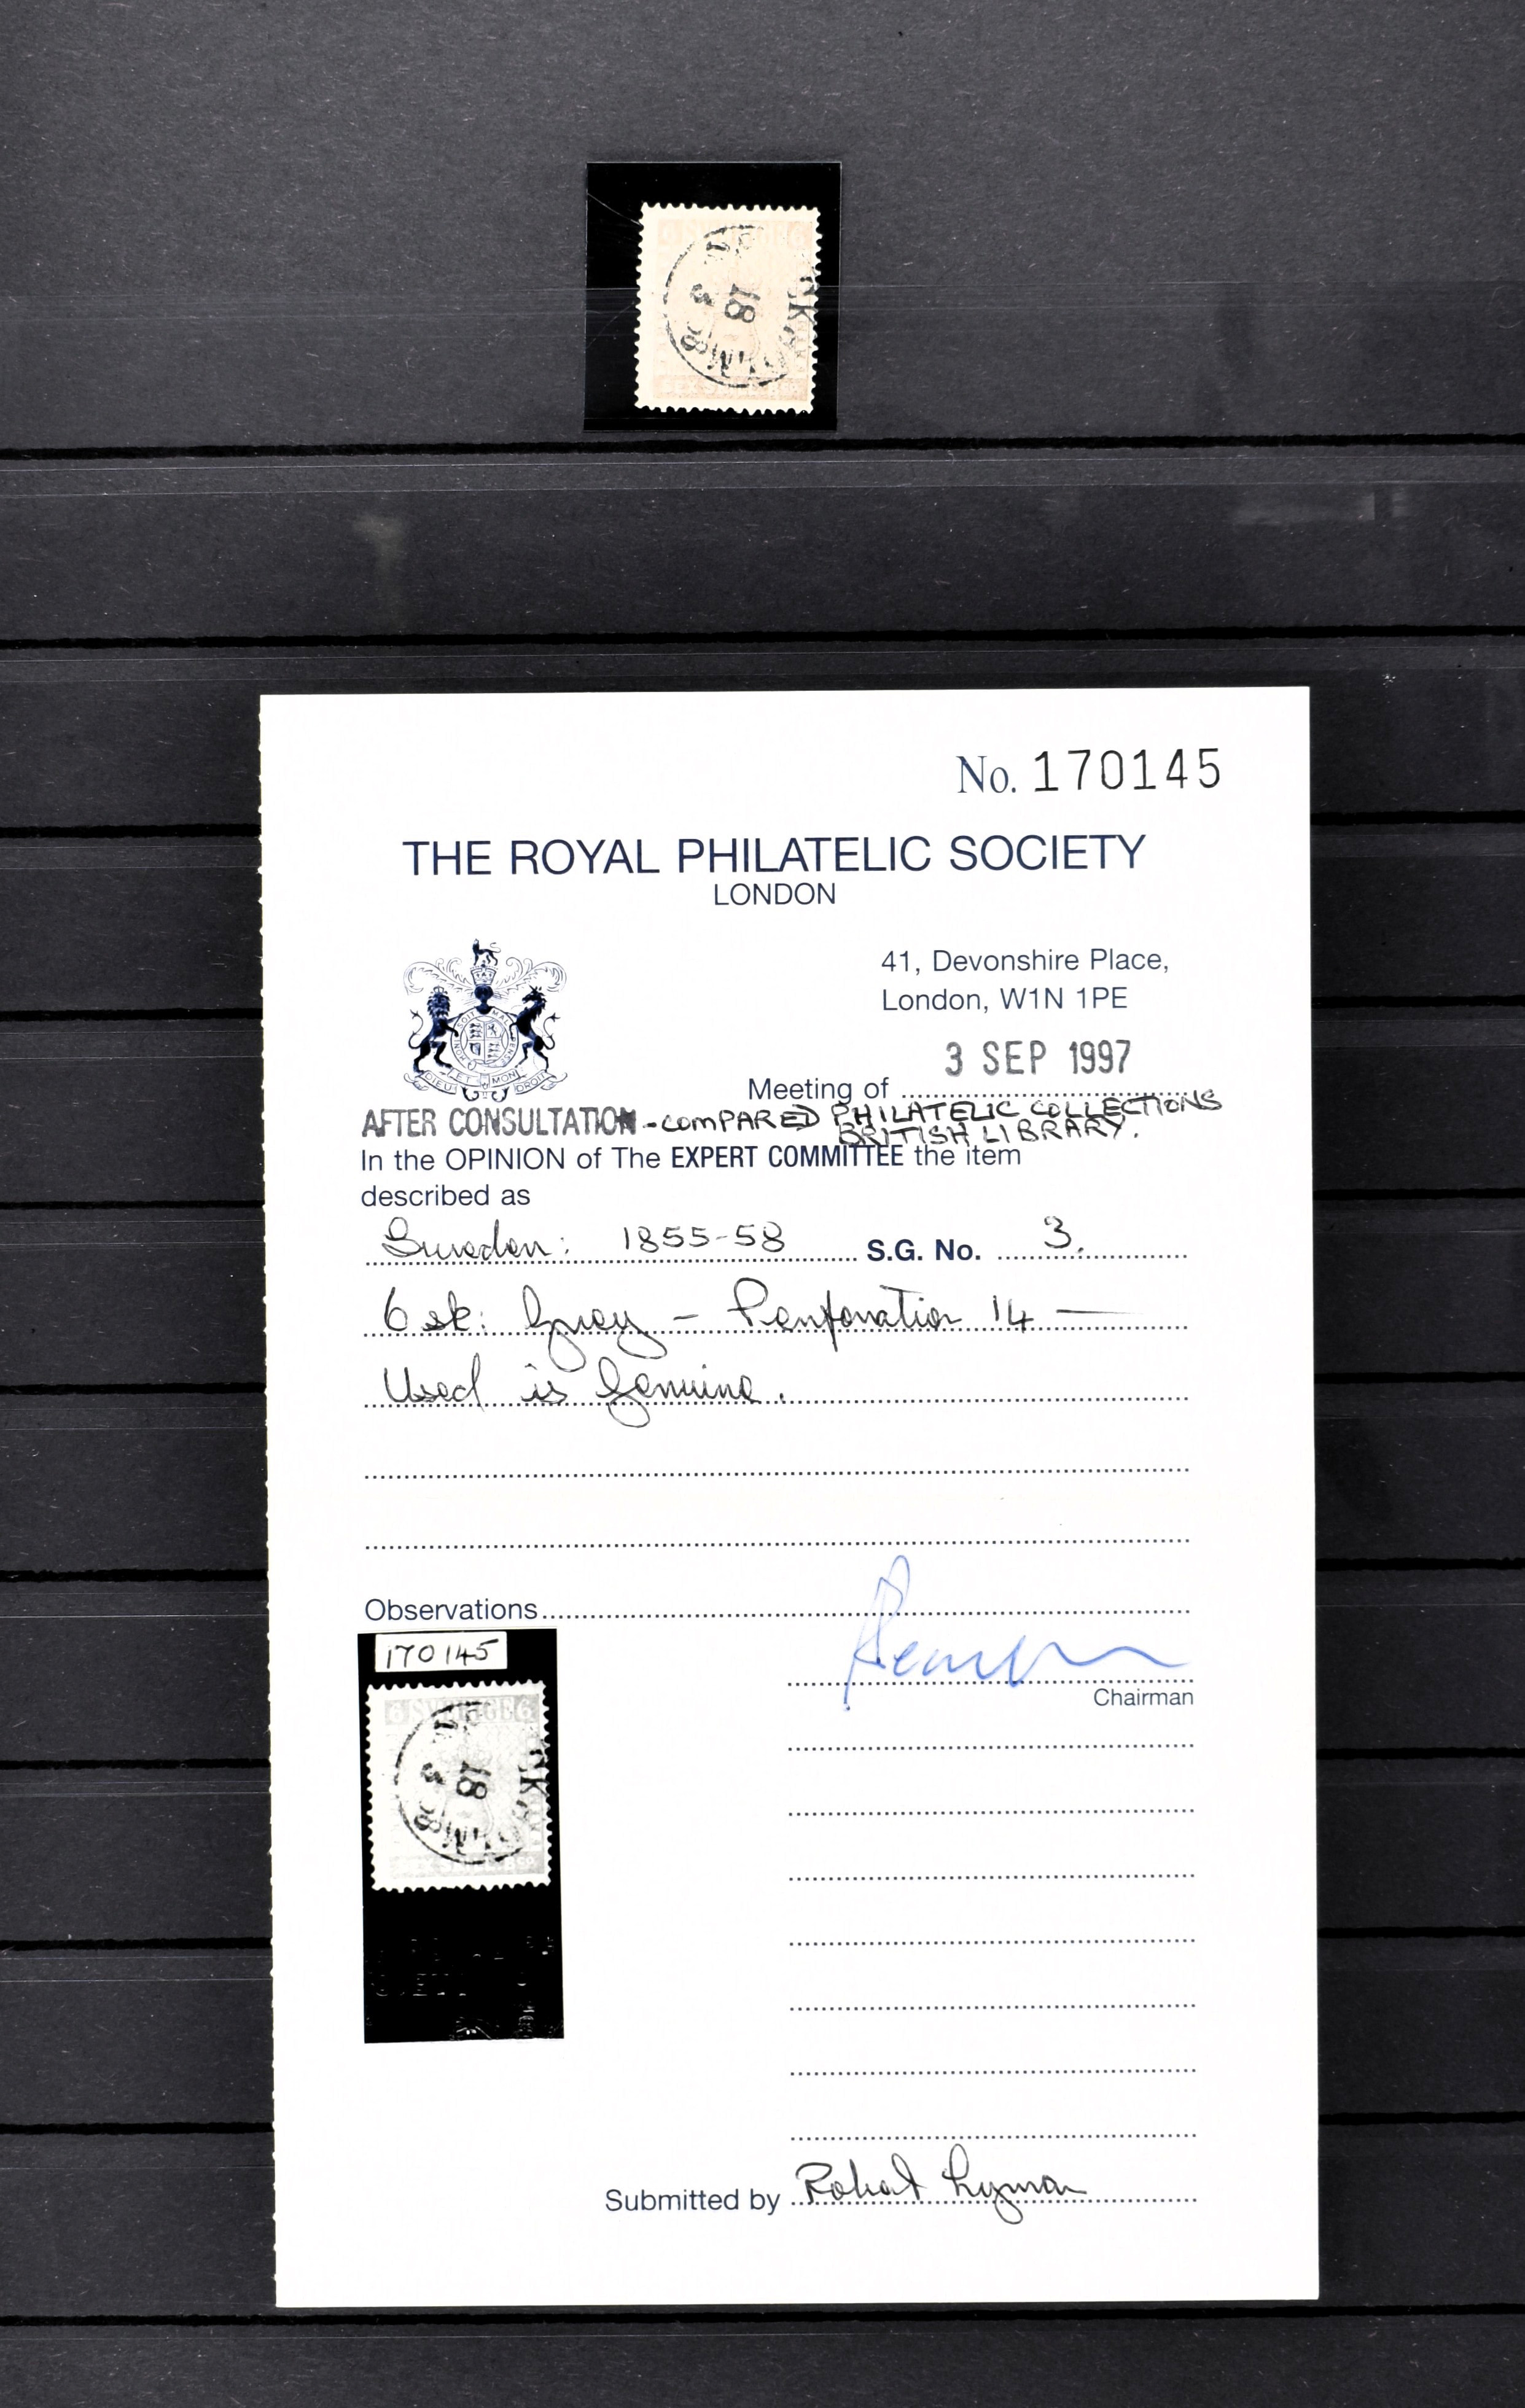 6 SVERIGE 6
18
3
No. 170145
THE ROYAL PHILATELIC SOCIETY
LONDON
41, Devonshire Place,
London, W1N 1PE
3 SEP 1997
Meeting of
AFTER CONSULTATION - COMPARED PHILATELIC COLLECTIONS
BRITISH LIBRARY.
In the OPINION of The EXPERT COMMITTEE the item
described as
Sweden: 1855-58 S.G. No. 3.
6 sk: Grey - Perforation 14 —
Used is Genuine.
Observations
170145
6 SVERIGE 6
18
3
Chairman
Submitted by Robert Lyman
DIEU ET MON DROIT